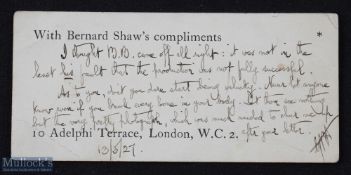 With Bernard Shaw's compliments *
I thought B.B. came off all right: it was not in the
least his fault that the production was not fully successful.
As to you, don't you dare start being unlucky. Never let anyone
know even if you break every bone in your body. But there was nothing
but the very pretty photograph, which was much needed to cheer me up
10 Adelphi Terrace, London, W.C. 2. after your letter.
13/5/27.
Mullock's